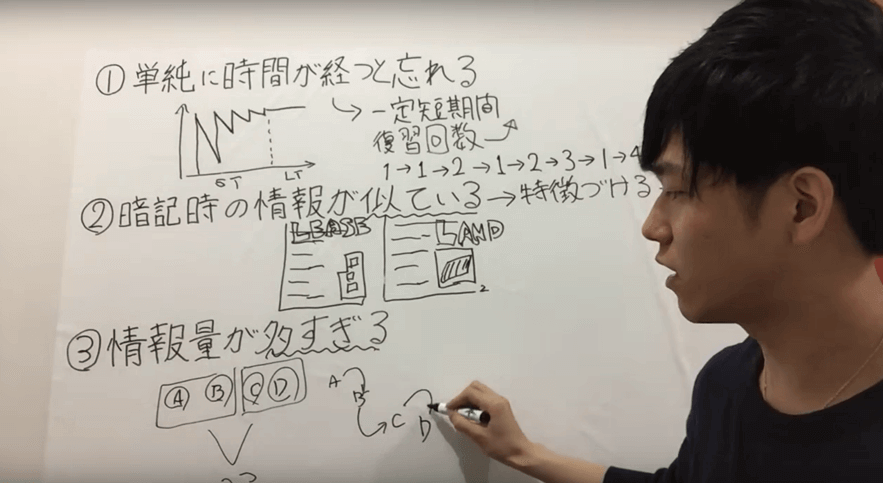 ① 単純に時間が経つと忘れる
→一定短期間
復習回数
1→1→2→1→2→3→1→4
ST LT
② 暗記時の情報が似ている→特徴づける
LEASE
LAMP
2
③ 情報量が多すぎる
A B C D
A
B
C
D